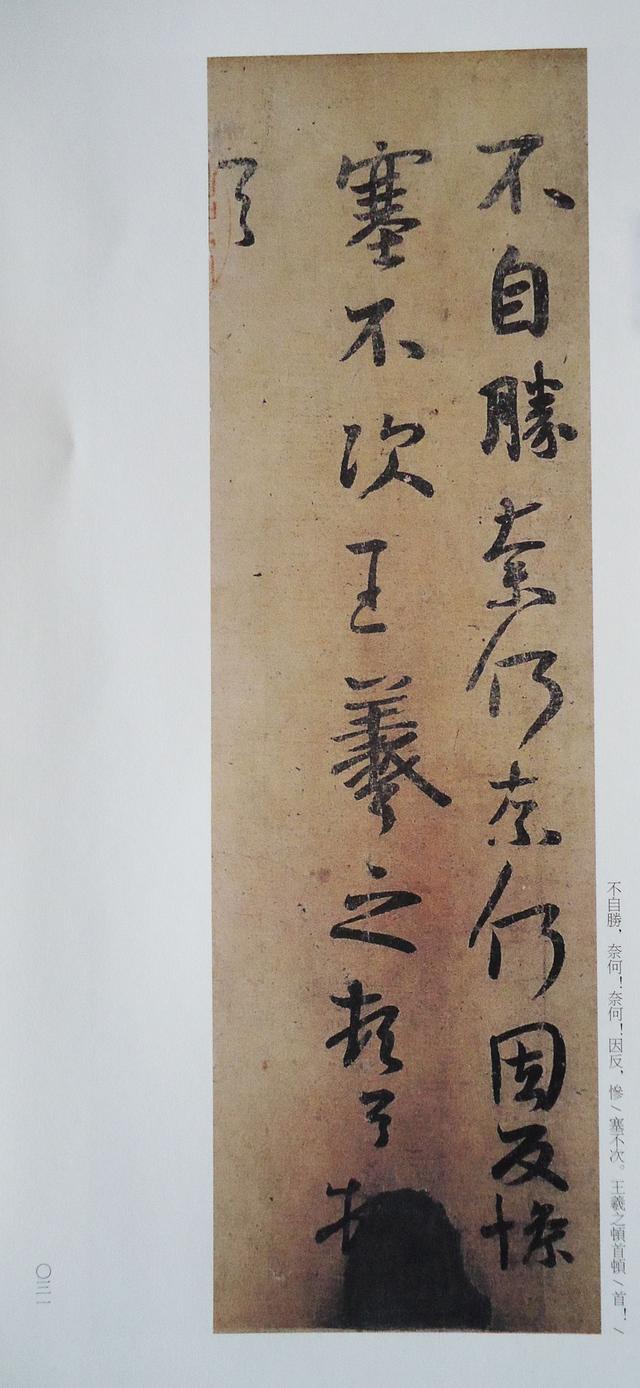 不自勝奈何奈何因反慘
塞不次王羲之頓首頓
首
不自勝，奈何！奈何！因反，慘／塞不次。王羲之頓首頓／首！／
〇三一